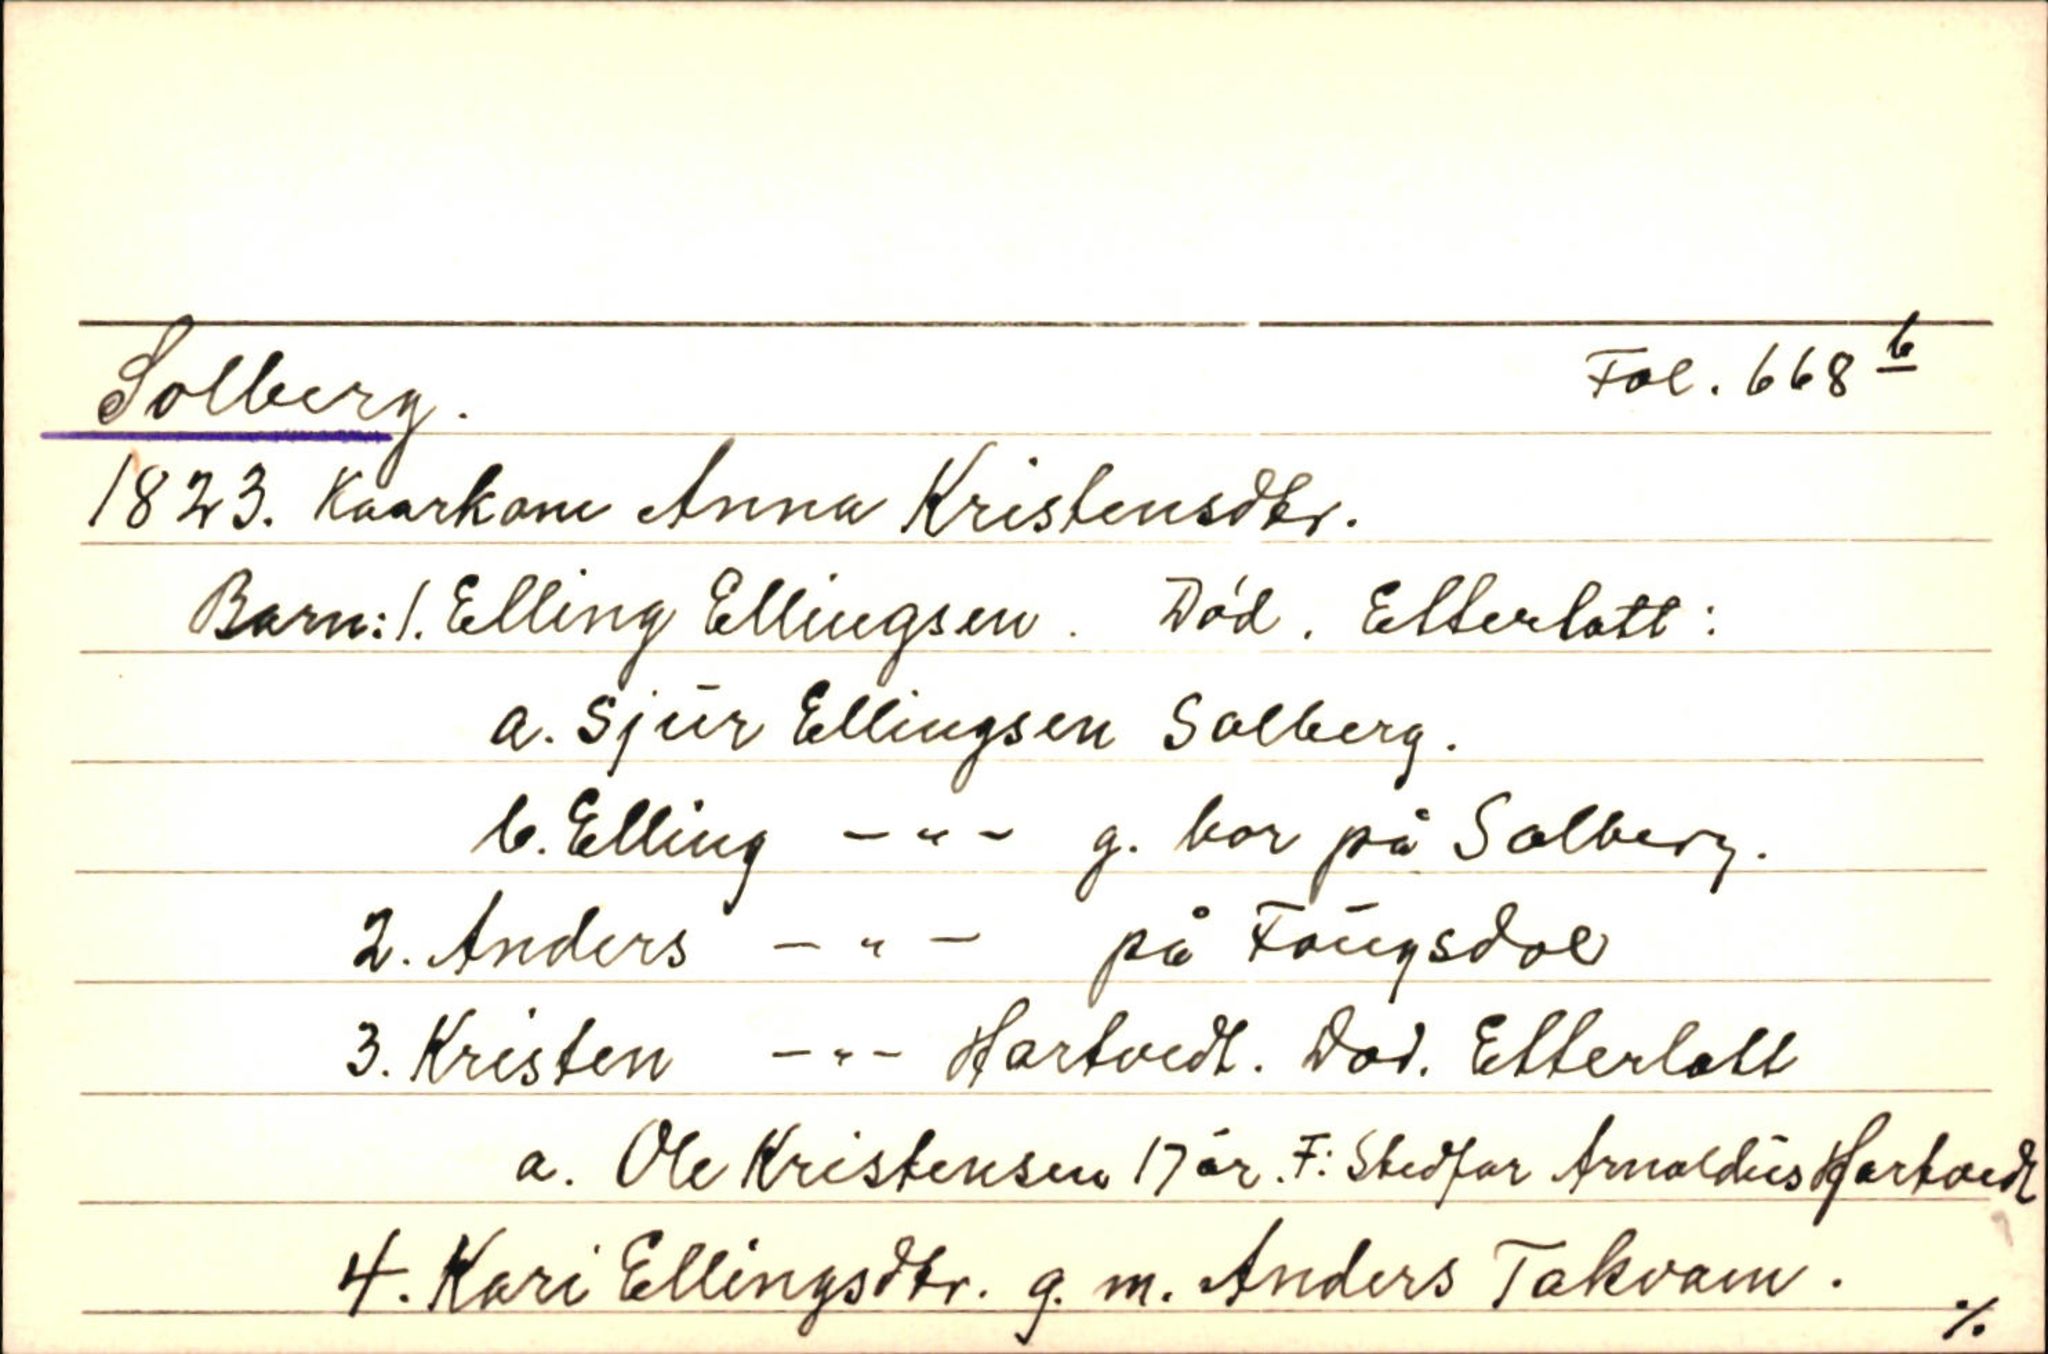 Solberg. Fol. 668 b
1823. Kaarkone Anna Kristensdtr.
Barn: 1. Elling Ellingsen. Död. Etterlatt:
a. Sjur Ellingsen Solberg.
b. Elling -"- g. bor på Solberg.
2. Anders -"- på Fougsdal
3. Kristen -"- Hartvedt. Död. Etterlatt
a. Ole Kristensen 17 år. F: Stedfar Arnoldus Hartvedt
4. Kari Ellingsdtr. g. m. Anders Takvam.
./.